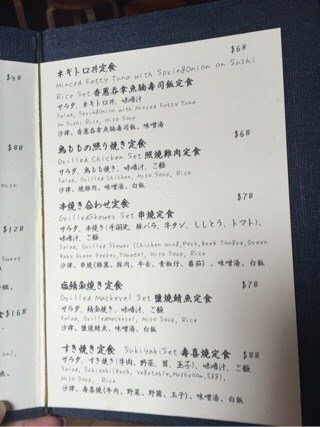 $48
$88
Miso
$128
Sweet
蝦、
$168
on),
飯
ネギトロ丼定食 $68
Minced Fatty Tuna with SpringOnion on Sushi
Rice Set 青蔥吞拿魚腩壽司飯定食
サラダ、ネギトロ丼、味噌汁
Salad, SpringOnion with Minced Fatty Tuna
on Sushi Rice, Miso Soup
沙律、青蔥吞拿魚腩壽司飯、味噌湯
鳥ももの照り焼き定食 $68
Grilled Chicken Set 照燒雞肉定食
サラダ、鳥もも焼き、味噌汁、ご飯
Salad, Grilled Chicken, Miso Soup, Rice
沙律、燒雞肉、味噌湯、白飯
串焼き合わせ定食 $78
GrilledSkewer Set 串燒定食
サラダ、串焼き(手羽元、豚バラ、牛タン、ししとう、トマト)、
味噌汁、ご飯
Salad, Grilled Skewer (Chicken wing, Pork, Beef Tongue, Green
Baby Green Pepper, Tomato), Miso Soup, Rice
沙律、串燒(雞翼、豚肉、牛舌、青椒仔、番茄)、味噌湯、白飯
塩鯖魚焼き定食 $78
Grilled Mackevel Set 鹽燒鯖魚定食
サラダ、鯖魚焼き、味噌汁、ご飯
Salad, GrilledMackevel, Miso Soup, Rice
沙律、鹽燒鯖魚、味噌湯、白飯
すき焼き定食 SukiyakiSet 壽喜燒定食 $88
サラダ、すき焼き(牛肉、野菜、茸、玉子)、味噌汁、ご飯
Salad, Sukiyaki(Beef, Vegetable, Mushroom, Egg),
Miso Soup, Rice
沙律、壽喜燒(牛肉、野菜、野菌、玉子)、味噌湯、白飯